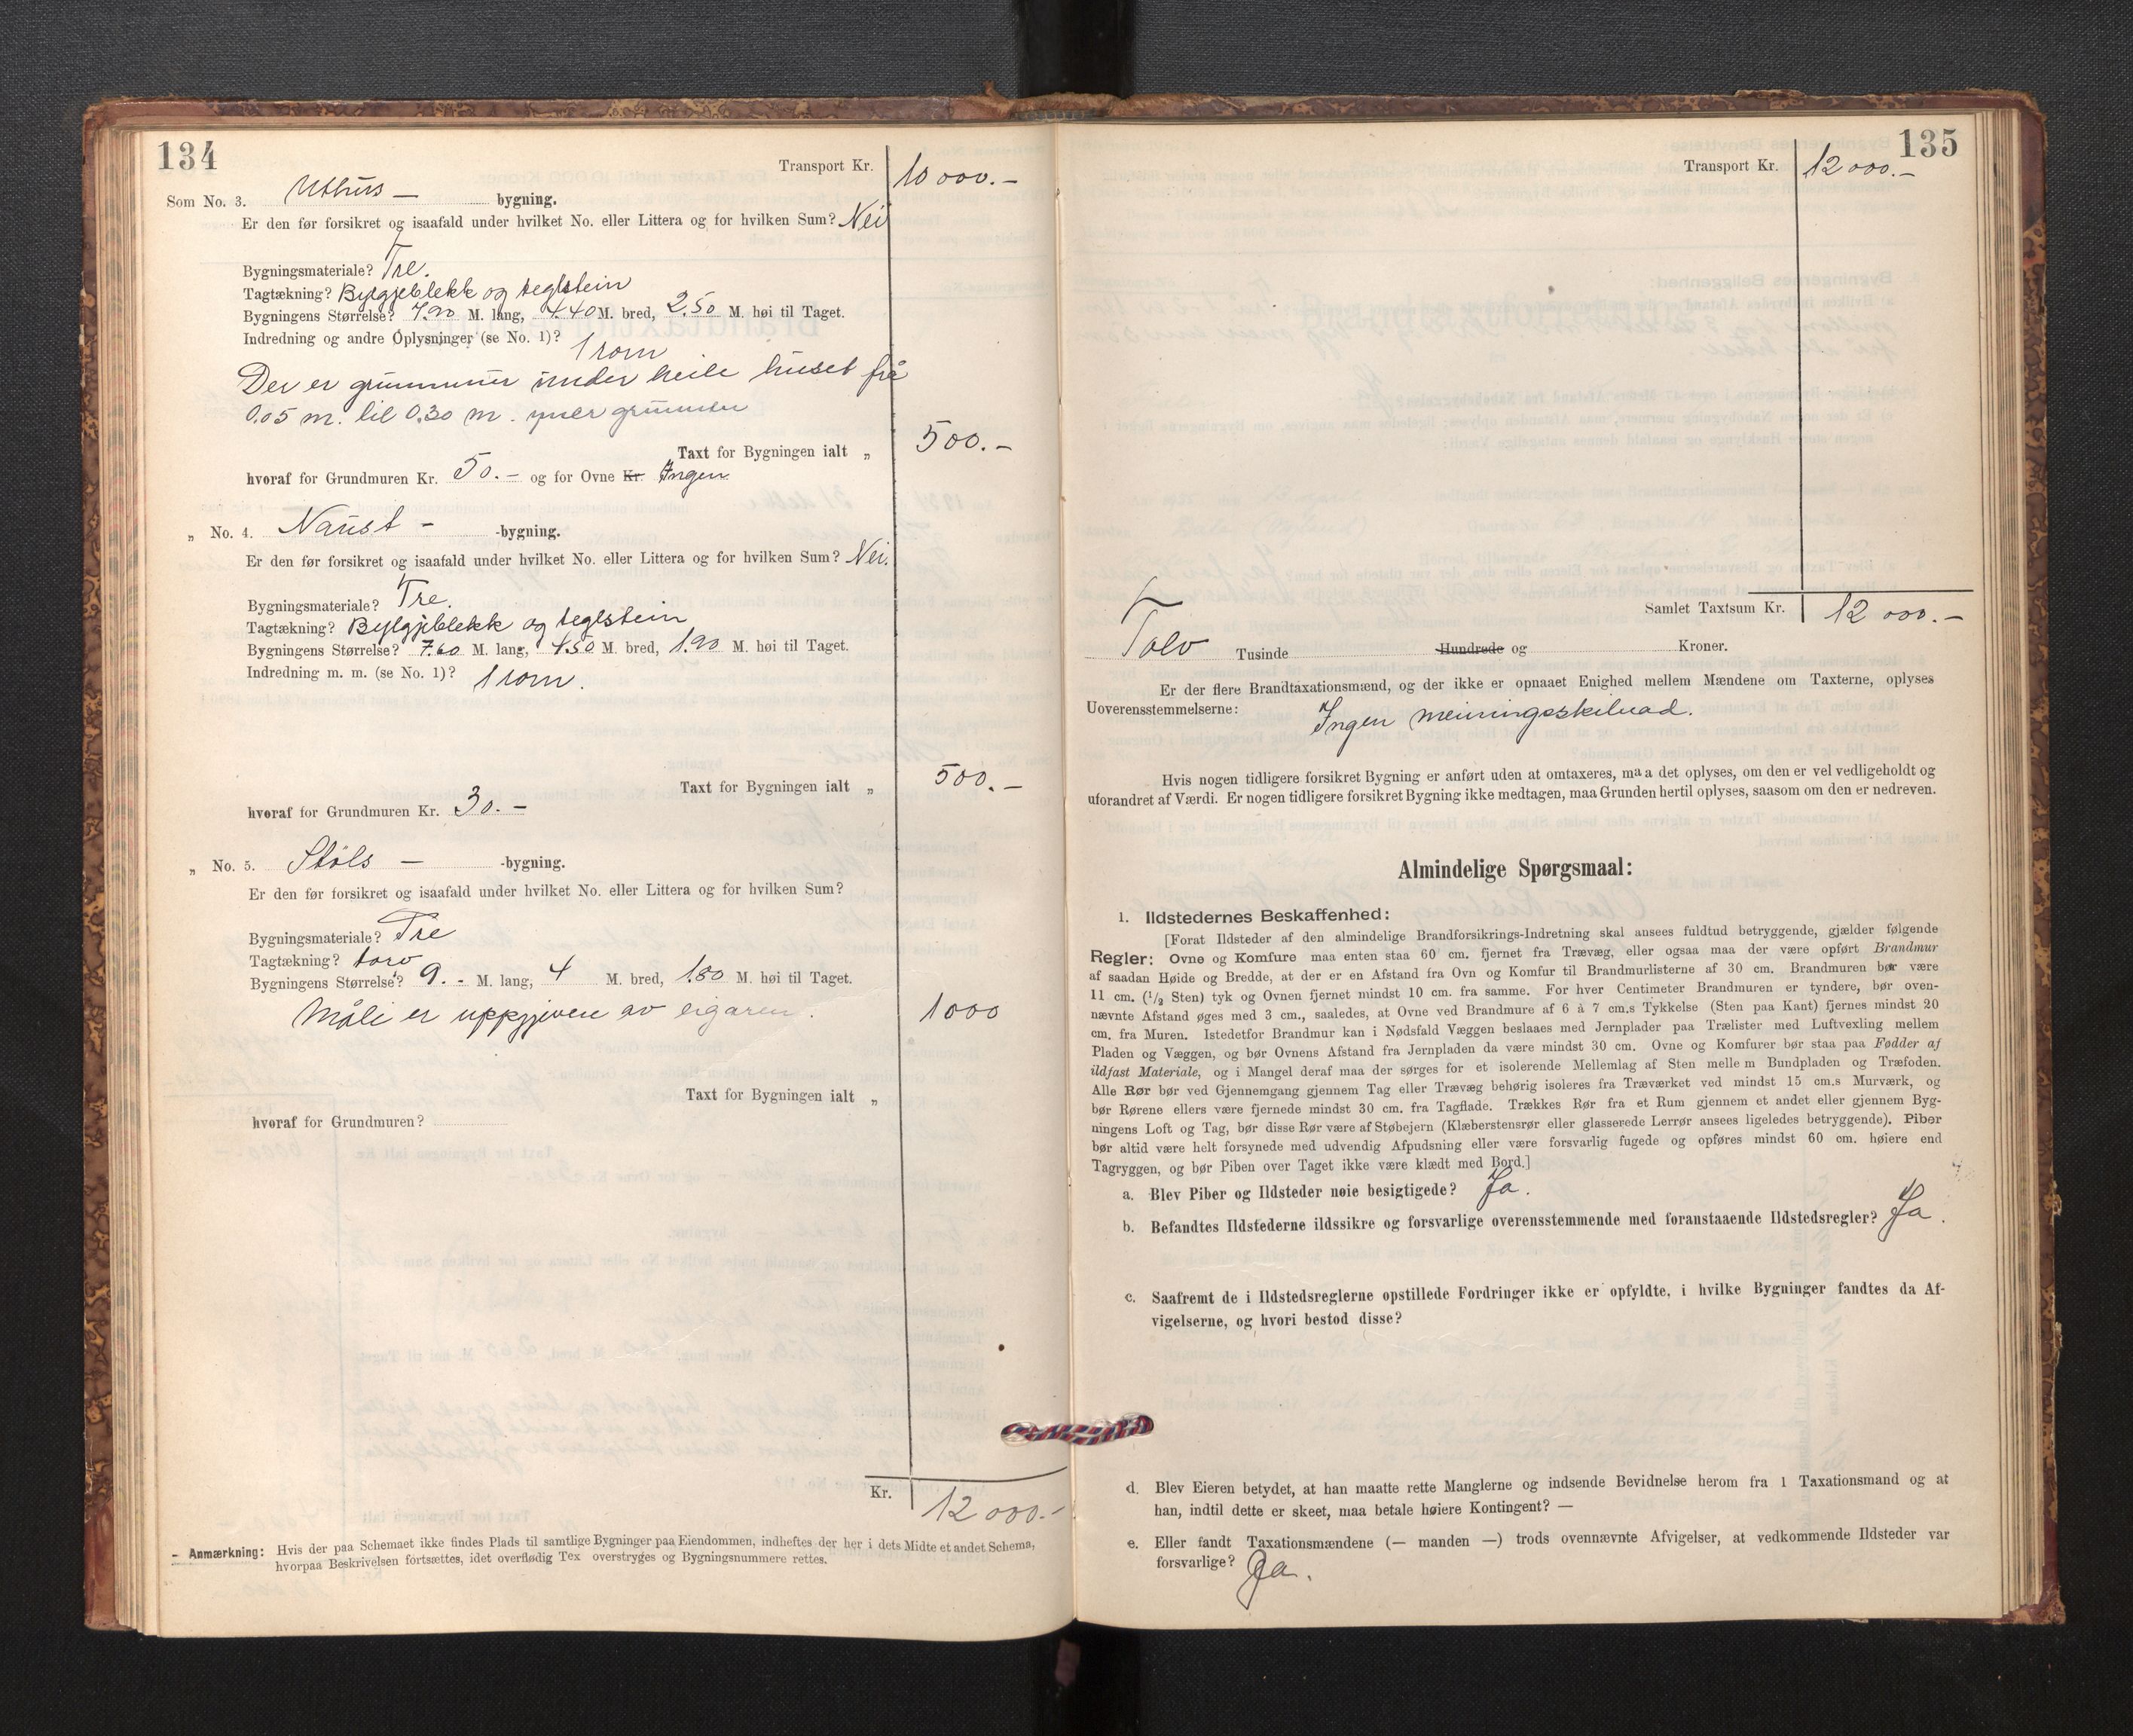 134
Transport Kr. 10 000.-
Som No. 3. Uthus - bygning.
Er den før forsikret og isaafald under hvilket No. eller Littera og for hvilken Sum? Nei
Bygningsmateriale? Tre.
Tagtækning? Bylgjeblekk og teglstein
Bygningens Størrelse? 7.90 M. lang, 4.40 M. bred, 2.50 M. høi til Taget.
Indredning og andre Oplysninger (se No. 1)? 1 rom
Der er grunnmur under heile huset frå
0.05 m. til 0.30 m. yver grunnen
Taxt for Bygningen ialt „ 500.-
hvoraf for Grundmuren Kr. 50.- og for Ovne Kr. Ingen.
„ No. 4. Naust - -bygning.
Er den før forsikret og isaafald under hvilket No. eller Littera og for hvilken Sum? Nei.
Bygningsmateriale? Tre.
Tagtækning? Bylgjeblekk og teglstein
Bygningens Størrelse? 7.60 M. lang, 4.50 M. bred, 1.90 M. høi til Taget.
Indredning m. m. (se No. 1)? 1 rom.
Taxt for Bygningen ialt „ 500.-
hvoraf for Grundmuren Kr. 30.-
„ No. 5. Støls - -bygning.
Er den før forsikret og isaafald under hvilket No. eller Littera og for hvilken Sum?
Bygningsmateriale? Tre
Tagtækning? torv
Bygningens Størrelse? 9.- M. lang, 4 M. bred, 1.80 M. høi til Taget.
Måli er uppgjevne av eigaren. 1000
Taxt for Bygningen ialt „
hvoraf for Grundmuren?
Kr. 12 000.-
- Anmærkning: Hvis der paa Schemaet ikke findes Plads til samtlige Bygninger paa Eiendommen, indheftes der her i dets Midte et andet Schema,
hvorpaa Beskrivelsen fortsættes, idet overflødig Tex overstryges og Bygningsnummere rettes.
135
Transport Kr. 12 000.-
Samlet Taxtsum Kr. 12 000.-
Tolv Tusinde Hundrede og Kroner.
Er der flere Brandtaxationsmænd, og der ikke er opnaaet Enighed mellem Mændene om Taxterne, oplyses
Uoverensstemmelserne: Ingen meiningsskilnad.
Hvis nogen tidligere forsikret Bygning er anført uden at omtaxeres, maa det oplyses, om den er vel vedligeholdt og
uforandret af Værdi. Er nogen tidligere forsikret Bygning ikke medtagen, maa Grunden hertil oplyses, saasom om den er nedreven.
Almindelige Spørgsmaal:
1. Ildstedernes Beskaffenhed:
[Forat Ildsteder af den almindelige Brandforsikrings-Indretning skal ansees fuldtud betryggende, gjælder følgende
Regler: Ovne og Komfure maa enten staa 60 cm. fjernet fra Trævæg, eller ogsaa maa der være opført Brandmur
af saadan Høide og Bredde, at der er en Afstand fra Ovn og Komfur til Brandmurlisterne af 30 cm. Brandmuren bør være
11 cm. (1/2 Sten) tyk og Ovnen fjernet mindst 10 cm. fra samme. For hver Centimeter Brandmuren er tyndere, bør oven-
nævnte Afstand øges med 3 cm., saaledes, at Ovne ved Brandmure af 6 à 7 cm.s Tykkelse (Sten paa Kant) fjernes mindst 20
cm. fra Muren. Istedetfor Brandmur kan i Nødsfald Væggen beslaaes med Jernplader paa Trælister med Luftvexling mellem
Pladen og Væggen, og bør Ovnens Afstand fra Jernpladen da være mindst 30 cm. Ovne og Komfurer bør staa paa Fødder af
ildfast Materiale, og i Mangel deraf maa der sørges for et isolerende Mellemlag af Sten mellem Bundpladen og Træfoden.
Alle Rør bør ved Gjennemgang gjennem Tag eller Trævæg behørig isoleres fra Træværket ved mindst 15 cm.s Murværk, og
bør Rørene ellers være fjernede mindst 30 cm. fra Tagflade. Trækkes Rør fra et Rum gjennem et andet eller gjennem Byg-
ningens Loft og Tag, bør disse Rør være af Støbejern (Klæberstensrør eller glasserede Lerrør ansees ligeledes betryggende). Piber
bør altid være helt forsynede med udvendig Afpudsning eller være forsvarlig fugede og opføres mindst 60 cm. høiere end
Tagryggen, og bør Piben over Taget ikke være klædt med Bord.]
a. Blev Piber og Ildsteder nøie besigtigede? Ja.
b. Befandtes Ildstederne ildssikre og forsvarlige overensstemmende med foranstaaende Ildstedsregler? Ja.
c. Saafremt de i Ildstedsreglerne opstillede Fordringer ikke er opfyldte, i hvilke Bygninger fandtes da Af-
vigelserne, og hvori bestod disse?
d. Blev Eieren betydet, at han maatte rette Manglerne og indsende Bevidnelse herom fra 1 Taxationsmand og at
han, indtil dette er skeet, maa betale høiere Kontingent? —
e. Eller fandt Taxationsmændene (— manden —) trods ovennævnte Afvigelser, at vedkommende Ildsteder var
forsvarlige? Ja.